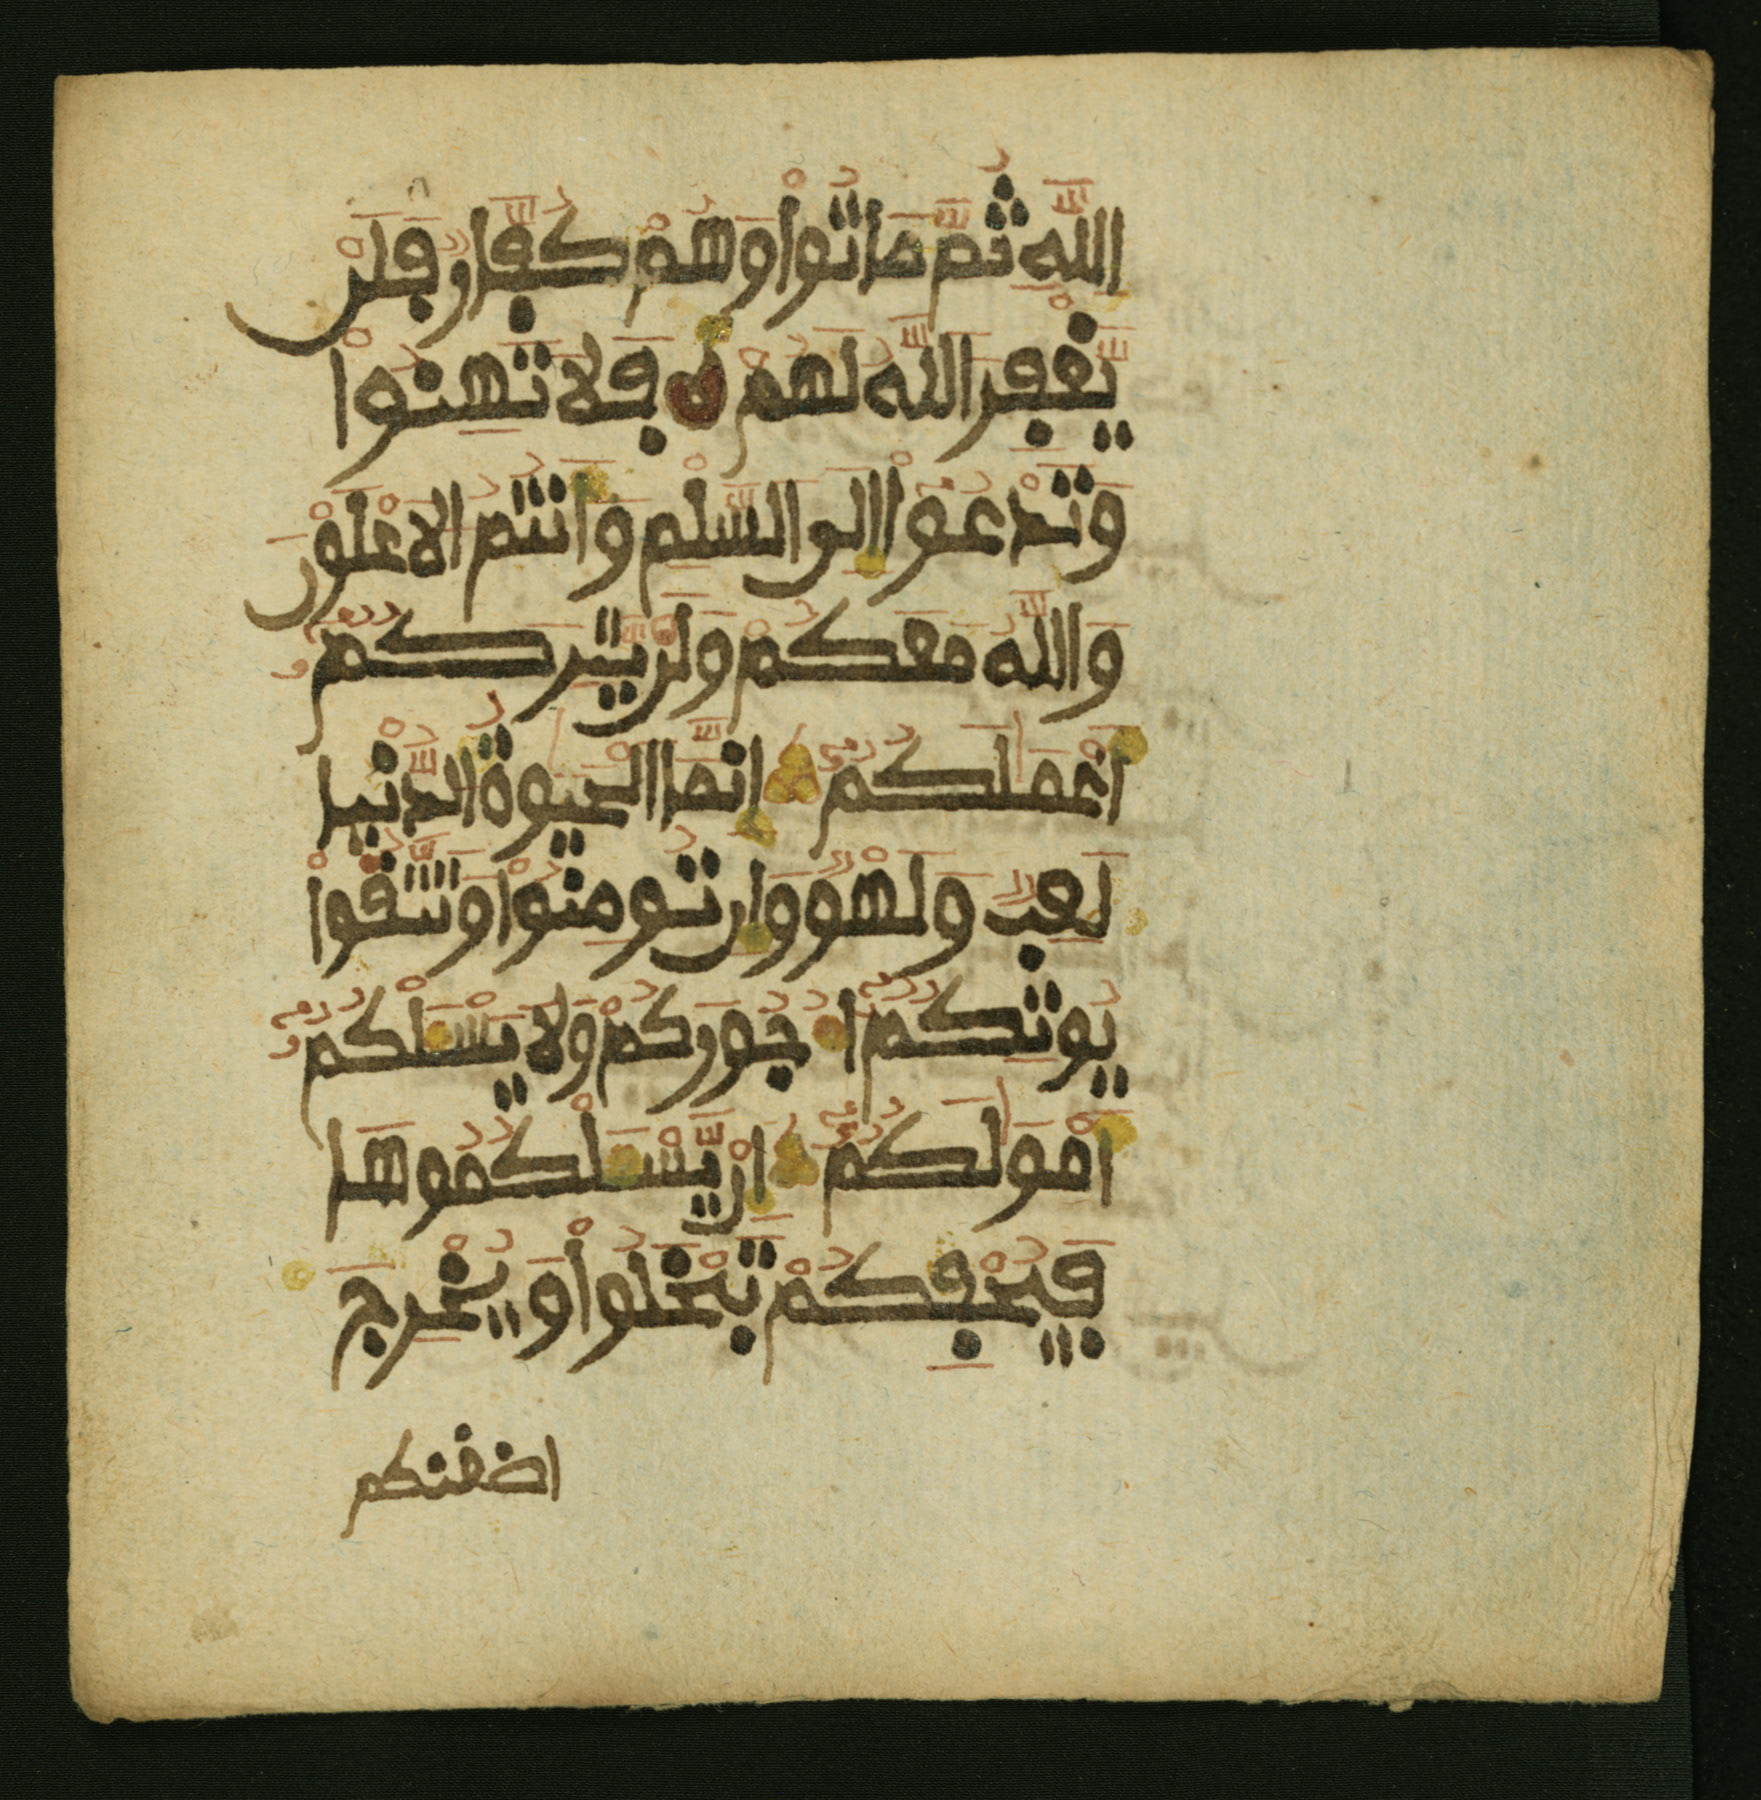 الله ثم ماتوا وهم كفار فلن
يغفر الله لهم فلا تهنوا
وتدعوا الى السلم وانتم الاعلون
والله معكم ولن يتركم
اعملكم انما الحيوة الدنيا
لعب ولهو وان تومنوا وتتقوا
يوتكم اجوركم ولا يسلكم
امولكم ان يسلكموها
فيحفكم تبخلوا ويخرج
اضغنكم